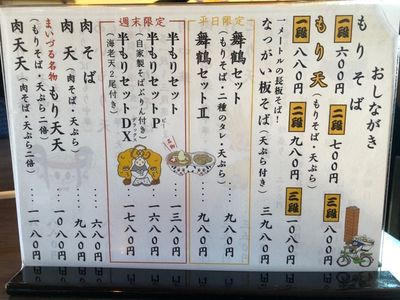 おしながき
もりそば
一段 六〇〇円 二段 七〇〇円 三段 八〇〇円
もり天(もりそば・天ぷら)
一段 八八〇円 二段 九八〇円 三段 一〇八〇円
一メートルの長板そば!
なっがい板そば(天ぷら付き) 三九八〇円
平日限定
舞鶴セット
(もりそば・二種のタレ・天ぷら) 九八〇円
舞鶴セットⅡ 九八〇円
週末限定
半もりセット 一三八〇円
半もりセットP 一六八〇円
(自家製そばぷりん付き)
半もりセットDX 一七八〇円
(海老天2尾付き)
肉そば 六八〇円
肉天(肉そば・天ぷら) 九八〇円
まいづる名物
もり天天 一〇八〇円
(もりそば・天ぷら二倍)
肉天天(肉そば・天ぷら二倍) 一一八〇円